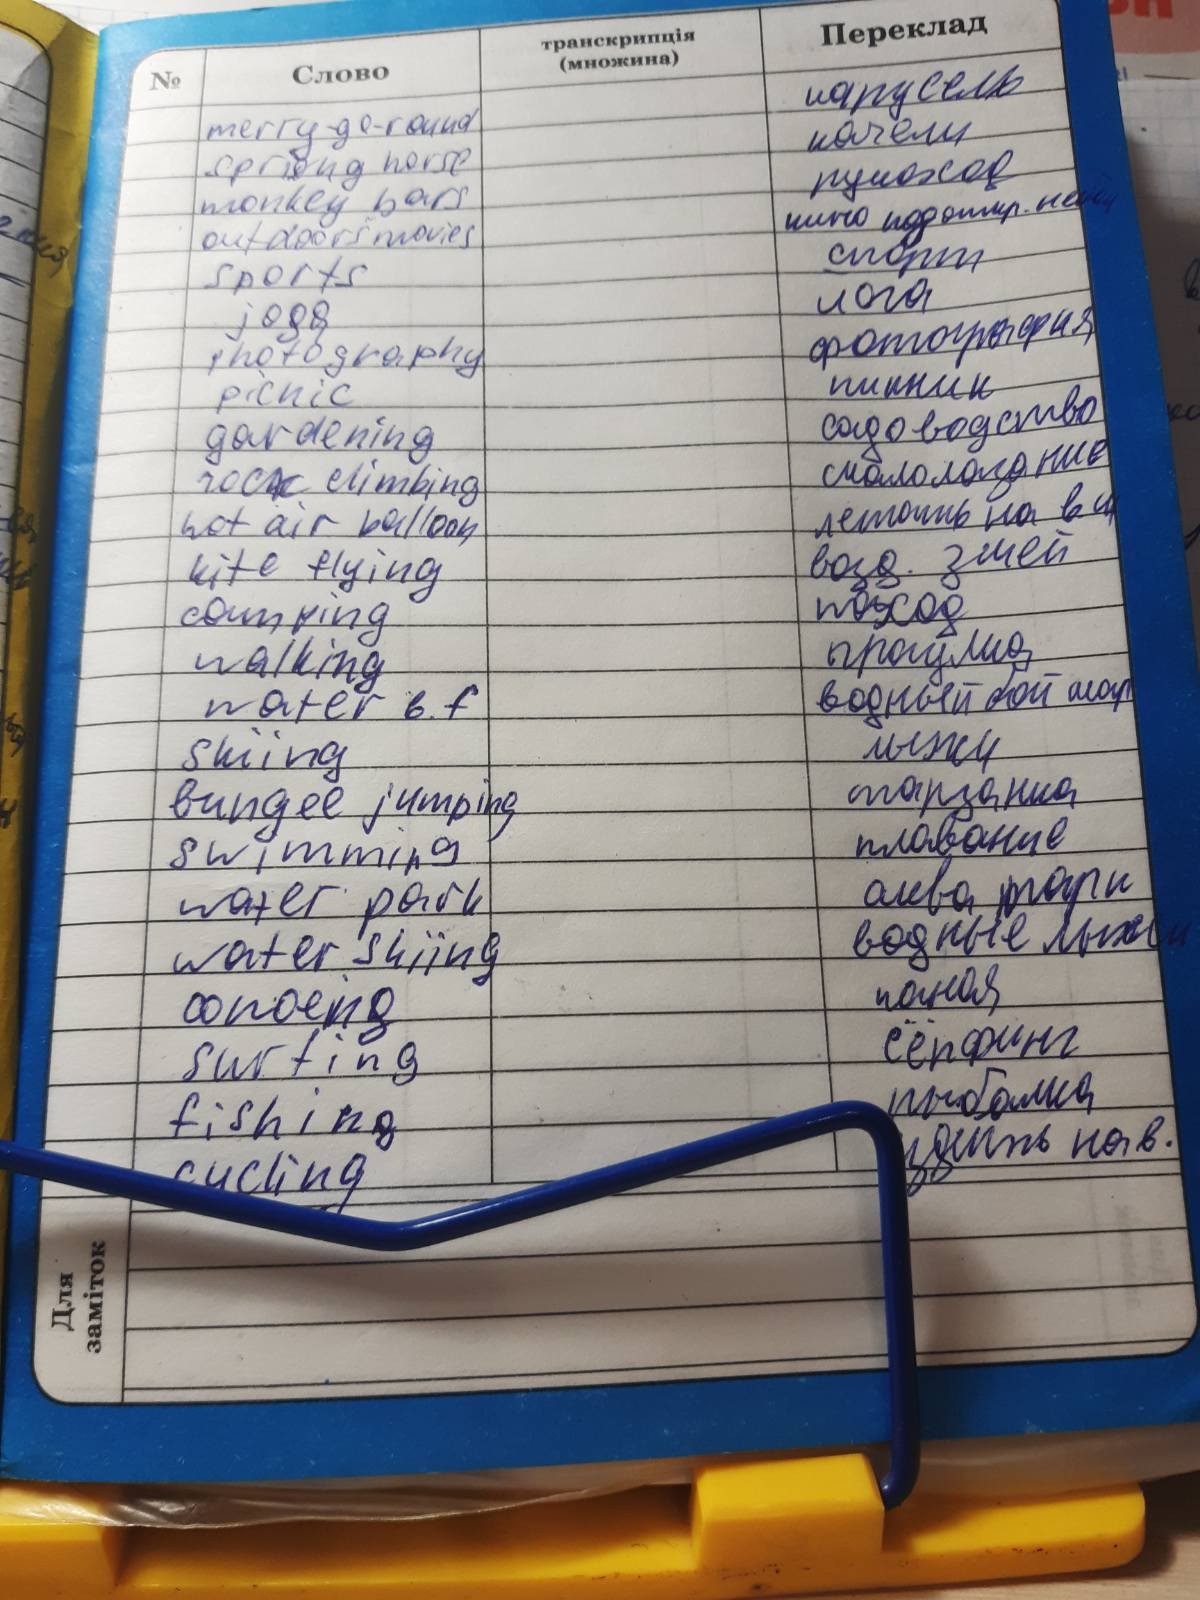 № Слово транскрипція (множина) Переклад
merry-go-round карусель
spriong horse качели
monkey bars рукоход
outdoors movies кино под откр. небом
sports спорт
joga йога
photography фотография
picnic пикник
gardening садоводство
rock climbing скалолазание
hot air balloon летать на в ш
kite flying возд. змей
camping поход
walking прогулка
water b.f водный бой шар
skiing лыжи
bungee jumping тарзанка
swimming плавание
water park аква парк
water skiing водные лыжи
canoeing каноя
surfing сёрфинг
fishing рыбалка
cycling ездить на в.
Для заміток